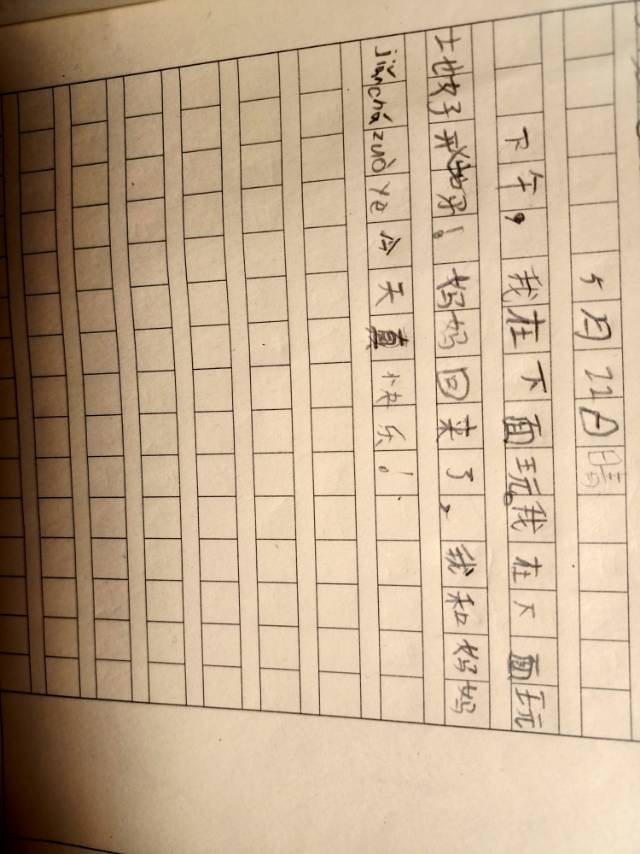 5月22日晴
下午，我在下面玩。我在下面玩
土也好开心好！妈妈回来了，我和妈妈
jiǎnchá zuò yè今天真快乐！